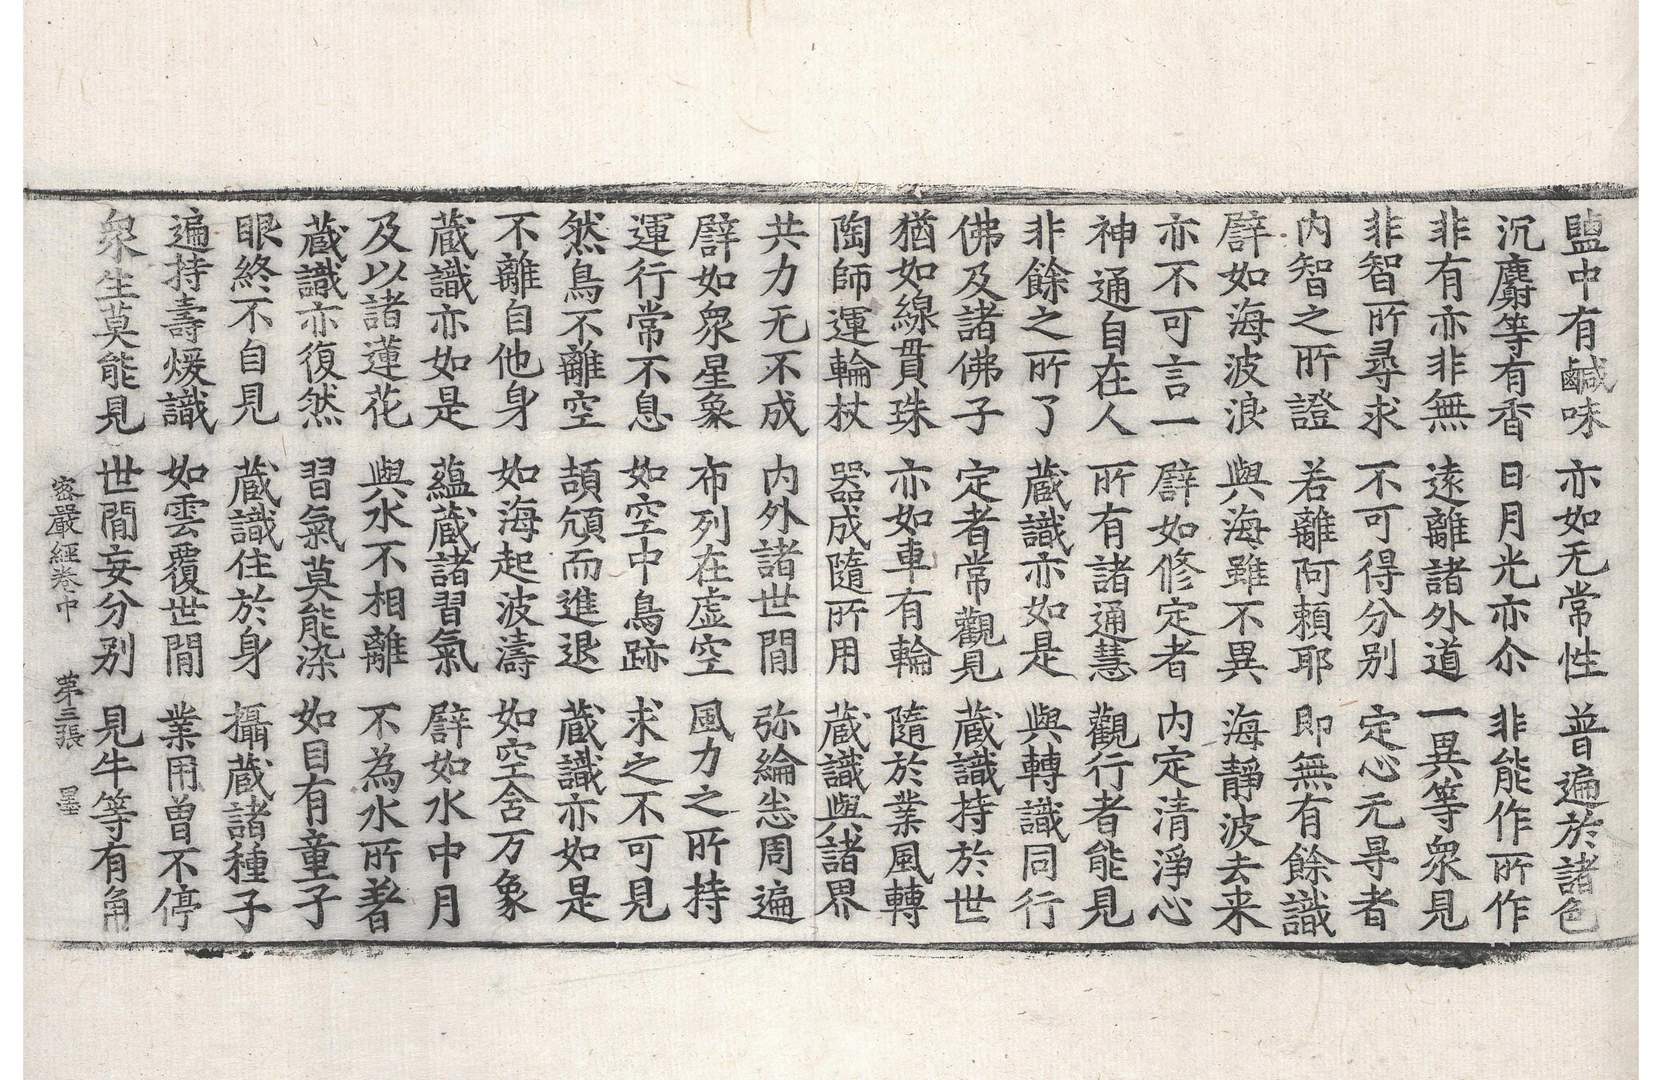 鹽中有鹹味 亦如无常性 普遍於諸色
沉麝等有香 日月光亦尒 非能作所作
非有亦非無 遠離諸外道 一異等衆見
非智所尋求 不可得分别 定心无㝵者
内智之所證 若離阿賴耶 即無有餘識
譬如海波浪 與海雖不異 海靜波去来
亦不可言一 譬如修定者 内定清淨心
神通自在人 所有諸通慧 觀行者能見
非餘之所了 蔵識亦如是 與轉識同行
佛及諸佛子 定者常觀見 蔵識持於世
猶如線貫珠 亦如車有輪 隨於業風轉
陶師運輪杖 器成隨所用 蔵識與諸界
共力无不成 内外諸世間 弥綸悉周遍
譬如衆星象 布列在虚空 風力之所持
運行常不息 如空中鳥跡 求之不可見
然鳥不離空 頡頏而進退 蔵識亦如是
不離自他身 如海起波濤 如空含万象
蔵識亦如是 蘊蔵諸習氣 譬如水中月
及以諸蓮花 與水不相離 不為水所著
蔵識亦復然 習氣莫能染 如目有童子
眼終不自見 蔵識住於身 攝蔵諸種子
遍持壽煖識 如雲覆世間 業用曽不停
衆生莫能見 世間妄分别 見牛等有角
密嚴經卷中 第三張 墨